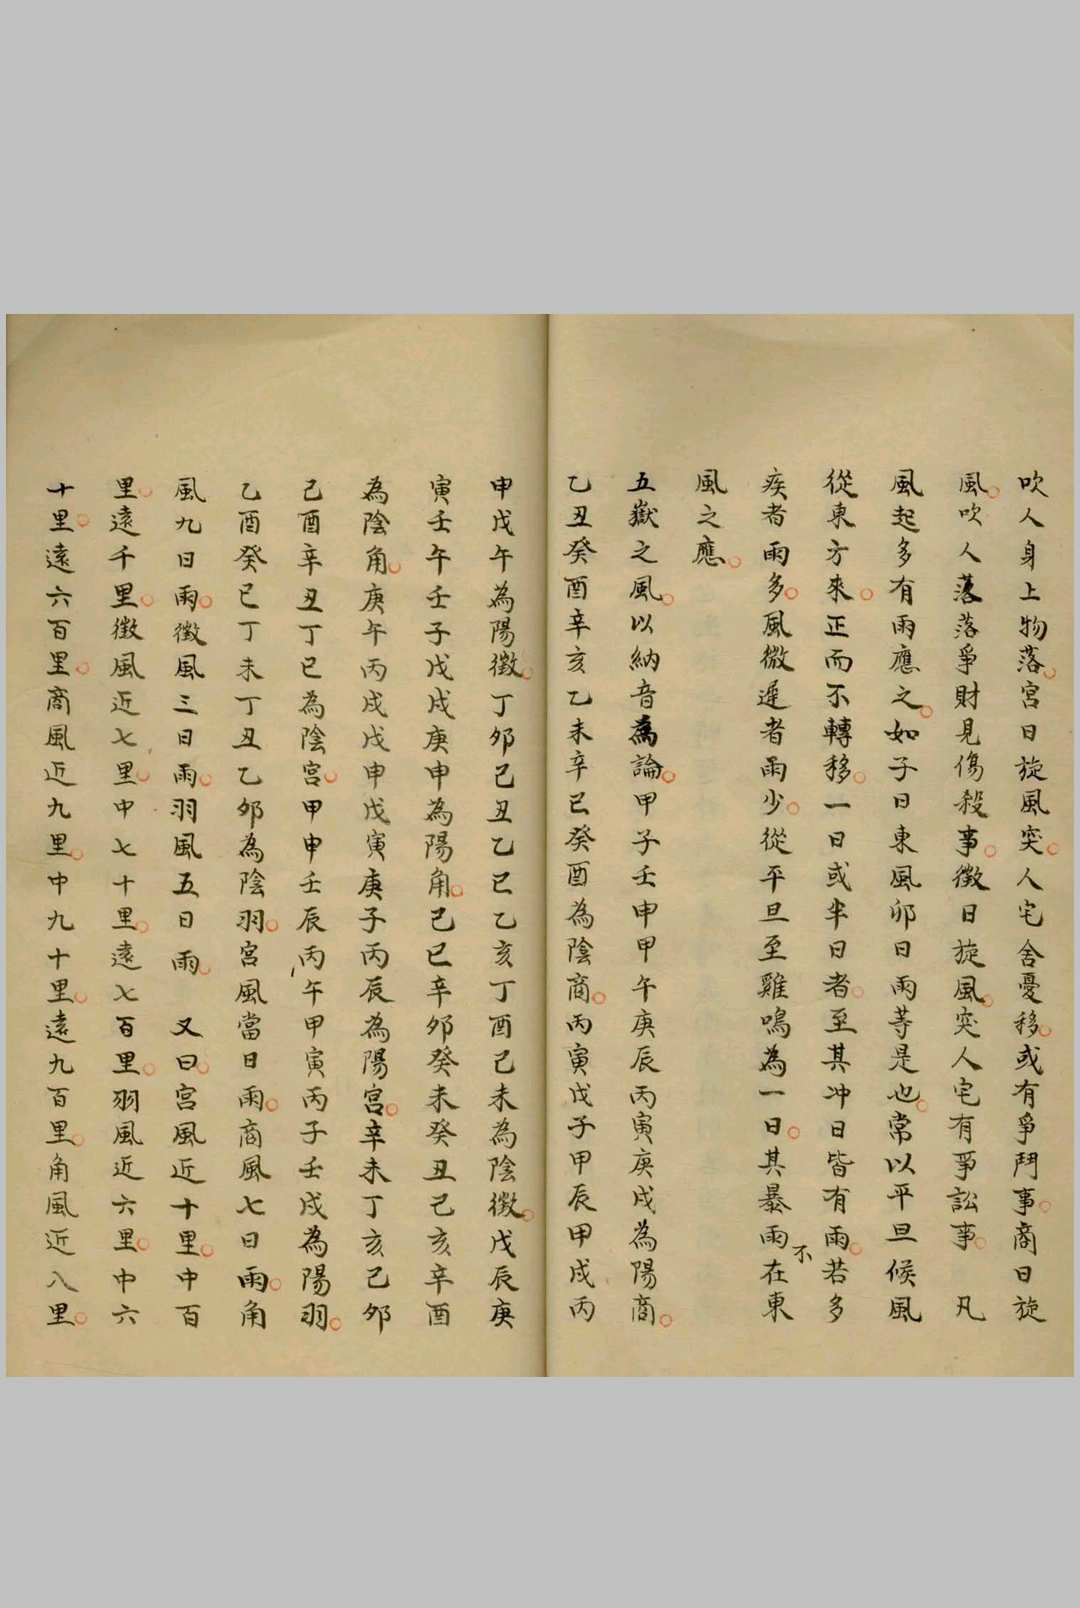 吹人身上物落宮日旋風突人宅舍憂移或有爭鬥事商日旋
風吹人落落爭財見傷殺事徵日旋風突人宅有爭訟事凡
風起多有雨應之如子日東風卯日雨等是也常以平旦候風
從東方來正而不轉移一日或半日者至其冲日皆有雨若多
疾者雨多風微遲者雨少從平旦至雞鳴為一日其暴雨不在東
風之應
五嶽之風以納音為論甲子壬申甲午庚辰丙寅庚戌為陽商
乙丑癸酉辛亥乙未辛巳癸酉為陰商丙寅戊子甲辰甲戌丙
申戊午為陽徵丁卯己丑乙巳乙亥丁酉己未為陰徵戊辰庚
寅壬午壬子戊戌庚申為陽角己巳辛卯癸未癸丑己亥辛酉
為陰角庚午丙戌戊申戊寅庚子丙辰為陽宮辛未丁亥己卯
己酉辛丑丁巳為陰宮甲申壬辰丙午甲寅丙子壬戌為陽羽
乙酉癸巳丁未丁丑乙卯為陰羽宮風當日雨商風七日雨角
風九日雨徵風三日雨羽風五日雨又曰宮風近十里中百
里遠千里徵風近七里中七十里遠七百里羽風近六里中六
十里遠六百里商風近九里中九十里遠九百里角風近八里